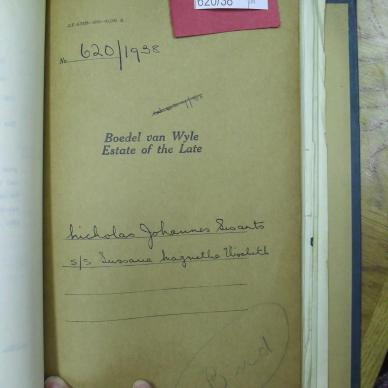 620/38
No 620/1938
Boedel van Wyle
Estate of the Late
Nicholas Johannes Swarts
s/s Sussana Magnetha